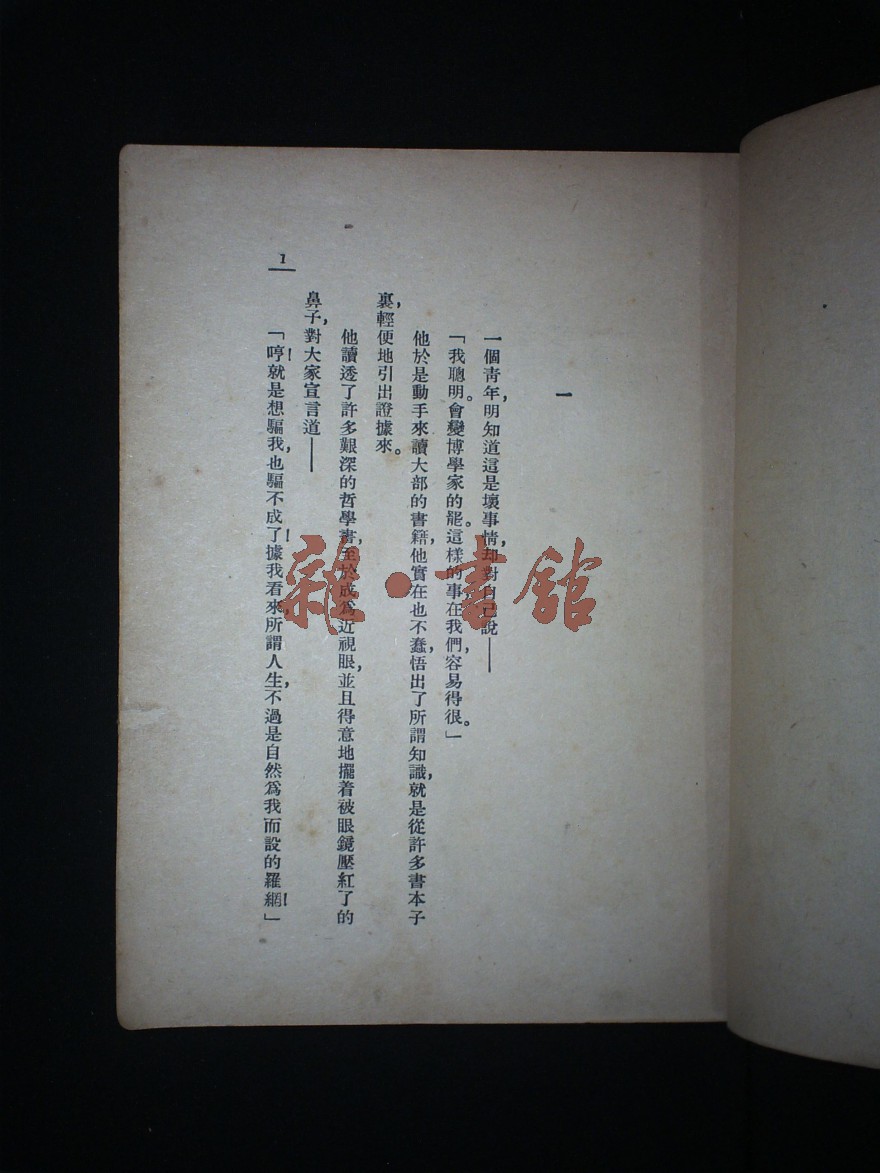 一
一個靑年，明知道這是壞事情，却對自己說——
「我聰明。會變博學家的罷。這樣的事在我們，容易得很。」
他於是動手來讀大部的書籍，他實在也不蠢，悟出了所謂知識，就是從許多書本子
裏，輕便地引出證據來。
他讀透了許多艱深的哲學書，至於成爲近視眼，並且得意地擺着被眼鏡壓紅了的
鼻子，對大家宣言道——
「哼！就是想騙我，也騙不成了！據我看來，所謂人生，不過是自然爲我而設的羅網！」
1
雜·書館